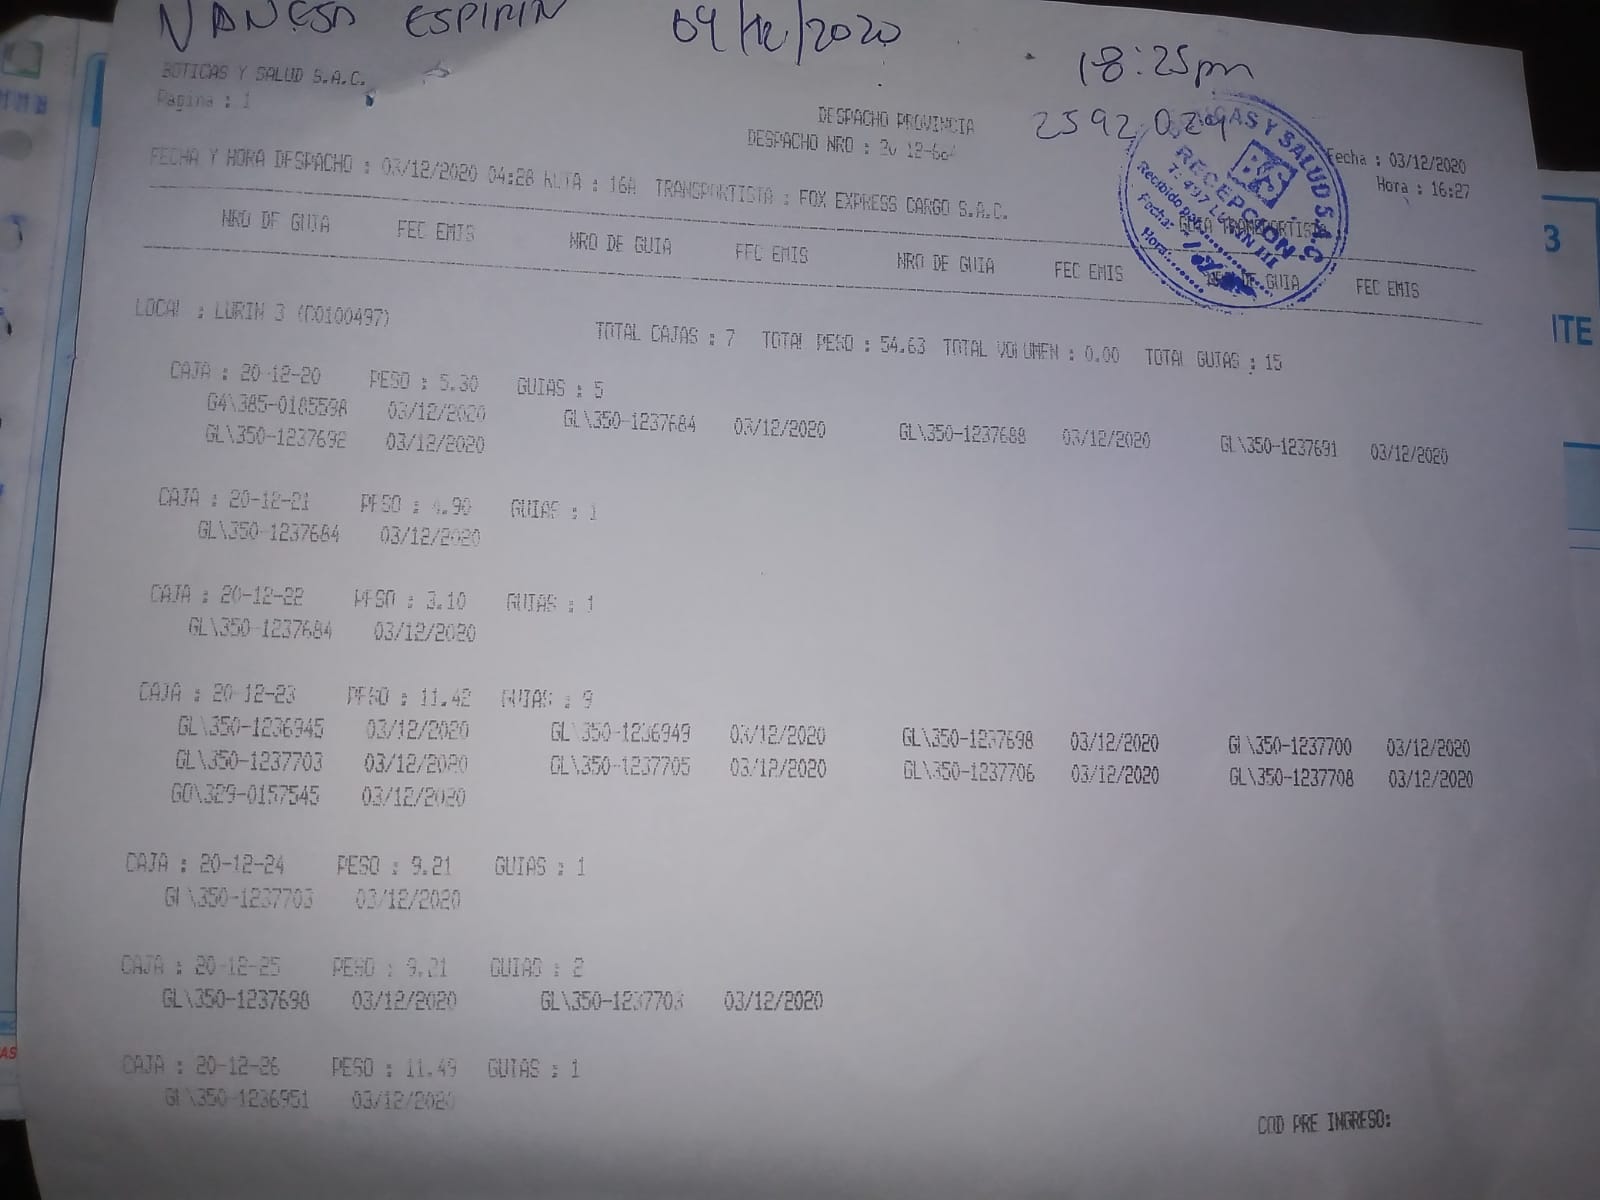 VANESA ESPIRIN 04/12/2020 18:25pm
2592029
BOTICAS Y SALUD S.A.C.
Pagina : 1
DESPACHO PROVINCIA
DESPACHO NRO :
Fecha : 03/12/2020
Hora : 16:27
FECHA Y HORA DESPACHO : 03/12/2020 04:28 RUTA : 16A TRANSPORTISTA : FOX EXPRESS CARGO S.A.C.
GUIA TRANSPORTISTA
BOTICAS Y SALUD S.A.C
BYS
RECEPCION
T. 497 LURIN III
Recibido por
Fecha:
Hora:
NRO DE GUIA FEC EMIS NRO DE GUIA FEC EMIS NRO DE GUIA FEC EMIS NRO DE GUIA FEC EMIS
LOCAL : LURIN 3 (C0100497) TOTAL CAJAS : 7 TOTAL PESO : 54.63 TOTAL VOLUMEN : 0.00 TOTAL GUIAS : 15
CAJA : 20-12-20 PESO : 5.30 GUIAS : 5
G4\385-0185598 03/12/2020 GL\350-1237684 03/12/2020 GL\350-1237688 03/12/2020 GL\350-1237691 03/12/2020
GL\350-1237692 03/12/2020
CAJA : 20-12-21 PESO : 4.90 GUIAS : 1
GL\350-1237684 03/12/2020
CAJA : 20-12-22 PESO : 3.10 GUIAS : 1
GL\350-1237684 03/12/2020
CAJA : 20-12-23 PESO : 11.42 GUIAS : 9
GL\350-1236945 03/12/2020 GL\350-1236949 03/12/2020 GL\350-1237698 03/12/2020 GL\350-1237700 03/12/2020
GL\350-1237703 03/12/2020 GL\350-1237705 03/12/2020 GL\350-1237706 03/12/2020 GL\350-1237708 03/12/2020
GD\329-0157545 03/12/2020
CAJA : 20-12-24 PESO : 9.21 GUIAS : 1
GL\350-1237703 03/12/2020
CAJA : 20-12-25 PESO : 9.21 GUIAS : 2
GL\350-1237698 03/12/2020 GL\350-1237703 03/12/2020
CAJA : 20-12-26 PESO : 11.49 GUIAS : 1
GL\350-1236951 03/12/2020
COD PRE INGRESO:
3